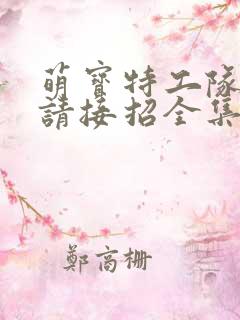 萌寶特工隊
請接招全集
鄭高柵